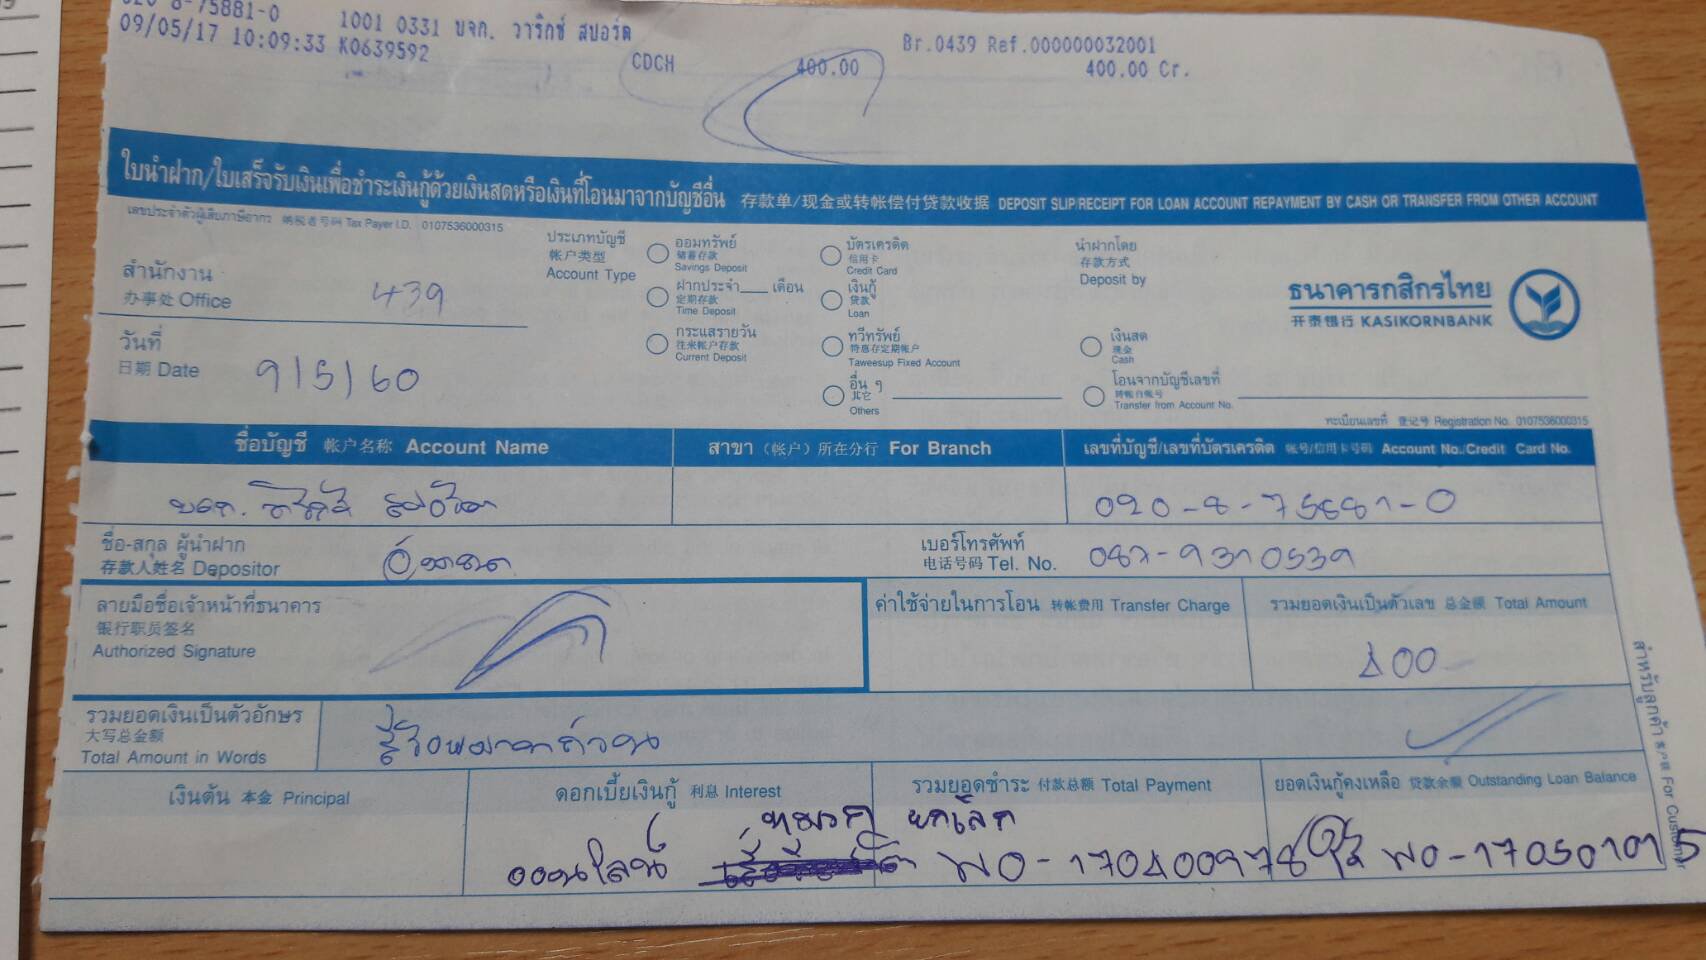 8-75881-0 1001 0331 บจก. วาริกซ์ สปอร์ต Br.0439 Ref.000000032001
09/05/17 10:09:33 K0639592 CDCH 400.00 400.00 Cr.
ใบนำฝาก/ใบเสร็จรับเงินเพื่อชำระเงินกู้ด้วยเงินสดหรือเงินที่โอนมาจากบัญชีอื่น 存款单/现金或转帐偿付贷款收据 DEPOSIT SLIP/RECEIPT FOR LOAN ACCOUNT REPAYMENT BY CASH OR TRANSFER FROM OTHER ACCOUNT
เลขประจำตัวผู้เสียภาษีอากร 纳税者号码 Tax Payer I.D. 0107536000315
สำนักงาน
办事处 Office 439
วันที่
日期 Date 9/5/60
ประเภทบัญชี
帐户类型
Account Type
ออมทรัพย์
储蓄存款
Savings Deposit
ฝากประจำ___เดือน
定期存款
Time Deposit
กระแสรายวัน
往来帐户存款
Current Deposit
บัตรเครดิต
信用卡
Credit Card
เงินกู้
贷款
Loan
ทวีทรัพย์
特惠存定期帐户
Taweesup Fixed Account
อื่น ๆ
其它
Others
นำฝากโดย
存款方式
Deposit by
เงินสด
现金
Cash
โอนจากบัญชีเลขที่
转帐自帐号
Transfer from Account No.
ธนาคารกสิกรไทย
开泰银行 KASIKORNBANK
ทะเบียนเลขที่ 登记号 Registration No. 0107536000315
ชื่อบัญชี 帐户名称 Account Name
สาขา (帐户) 所在分行 For Branch
เลขที่บัญชี/เลขที่บัตรเครดิต 帐号/信用卡号码 Account No./Credit Card No.
บจก. วาริกซ์ สปอร์ต
020-8-75881-0
ชื่อ-สกุล ผู้นำฝาก
存款人姓名 Depositor
เบอร์โทรศัพท์
电话号码 Tel. No. 087-9310539
ลายมือชื่อเจ้าหน้าที่ธนาคาร
银行职员签名
Authorized Signature
ค่าใช้จ่ายในการโอน 转帐费用 Transfer Charge
รวมยอดเงินเป็นตัวเลข 总金额 Total Amount
400
รวมยอดเงินเป็นตัวอักษร
大写总金额
Total Amount in Words
สี่ร้อยบาทถ้วน
เงินต้น 本金 Principal
ดอกเบี้ยเงินกู้ 利息 Interest
รวมยอดชำระ 付款总额 Total Payment
ยอดเงินกู้คงเหลือ 贷款余额 Outstanding Loan Balance
ยกเลิก
ออนไลน์ WO-170400978 ใช้ WO-170501015
สำหรับลูกค้า 客户联 For Customer